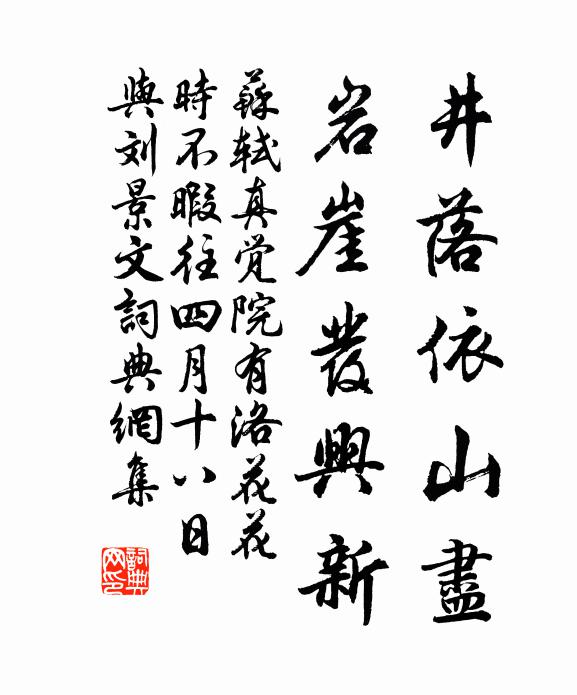 井落依山盡
岩崖發興新
蘇軾真觉院有洛花花
時不暇往四月十八日
與刘景文詞典網集
詞典网印